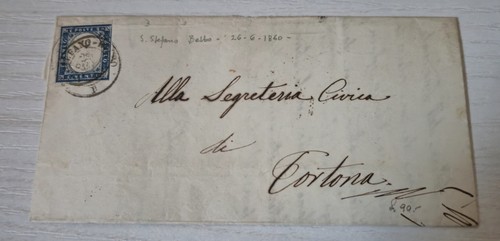 S. Stefano Belbo - 26-6-1860 -
Alla Segreteria Civica
di
Tortona